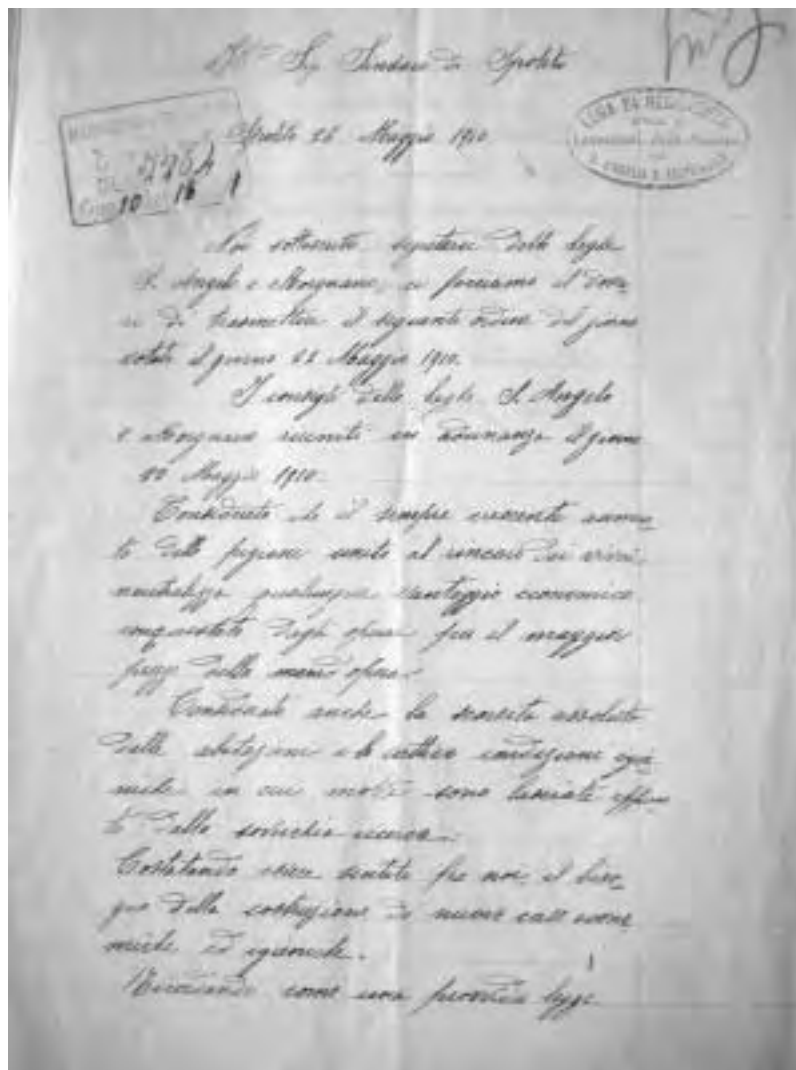 Ill.mo Sig. Sindaco di Spoleto
Spoleto 26 Maggio 1910
LEGA DI RESISTENZA
Lavoratori delle Miniere
S. ANGELO E MORGNANO
10 16 1
Noi sottoscritti segretari delle leghe
S. Angelo e Morgnano, ci facciamo il dove-
re di trasmettere il seguente ordine del giorno
votato il giorno 22 Maggio 1910.
I consigli delle leghe S. Angelo
e Morgnano riuniti in adunanza il giorno
22 Maggio 1910.
Considerato che il sempre crescente aumen-
to delle pigioni unito al rincaro dei viveri
neutralizza qualunque vantaggio economico
conquistato dagli operai per il maggior
prezzo della mano d'opera.
Considerato anche la scarsità assoluta
delle abitazioni e le cattive condizioni igie-
niche in cui molte sono lasciate
dalla soverchia ricerca.
Costatando essere sentito fra noi il biso-
gno della costruzione di nuove case econo-
miche ed igieniche.
Ricordando come una provvida legge